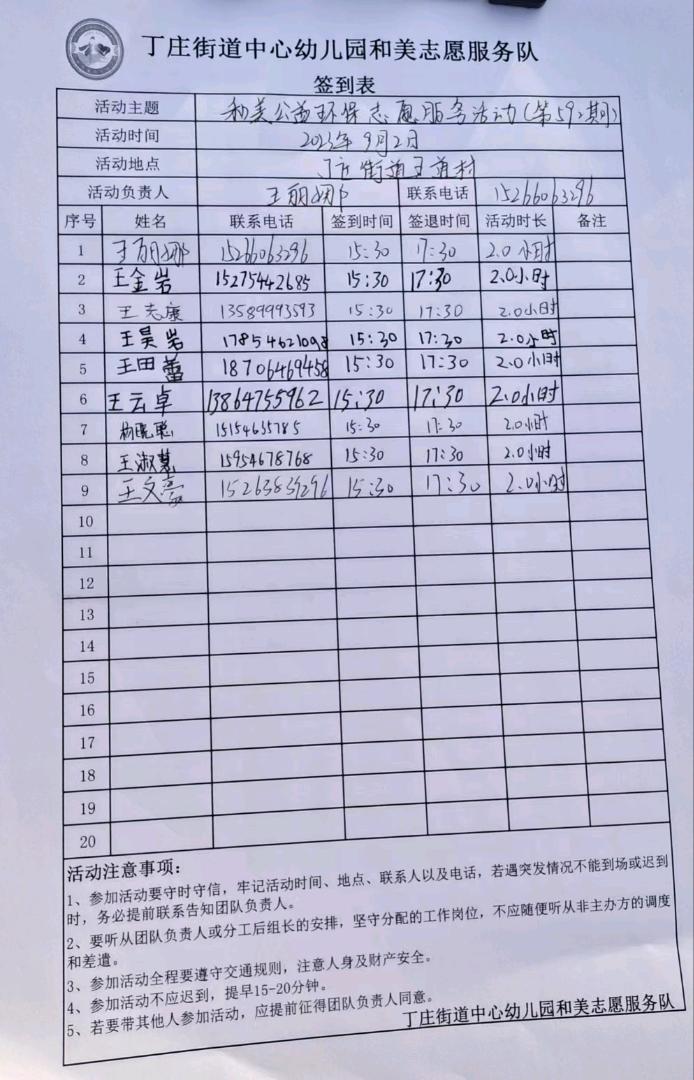 丁庄街道中心幼儿园和美志愿服务队
签到表
活动主题 和美公益环保志愿服务活动(第592期)
活动时间 2023年9月2日
活动地点 丁庄街道王道村
活动负责人 王丽娜 联系电话 15266063296
序号 姓名 联系电话 签到时间 签退时间 活动时长 备注
1 王丽娜 15266063296 15:30 17:30 2.0小时
2 王金岩 15275442685 15:30 17:30 2.0小时
3 王志康 13589993593 15:30 17:30 2.0小时
4 王昊岩 17854621098 15:30 17:30 2.0小时
5 王田蕾 18706469458 15:30 17:30 2.0小时
6 王云卓 13864755962 15:30 17:30 2.0小时
7 杨晓聪 15154635785 15:30 17:30 2.0小时
8 王淑慧 15954678768 15:30 17:30 2.0小时
9 王文豪 15263839296 15:30 17:30 2.0小时
10
11
12
13
14
15
16
17
18
19
20
活动注意事项:
1、参加活动要守时守信,牢记活动时间、地点、联系人以及电话,若遇突发情况不能到场或迟到
时,务必提前联系告知团队负责人。
2、要听从团队负责人或分工后组长的安排,坚守分配的工作岗位,不应随便听从非主办方的调度
和差遣。
3、参加活动全程要遵守交通规则,注意人身及财产安全。
4、参加活动不应迟到,提早15-20分钟。
5、若要带其他人参加活动,应提前征得团队负责人同意。
丁庄街道中心幼儿园和美志愿服务队